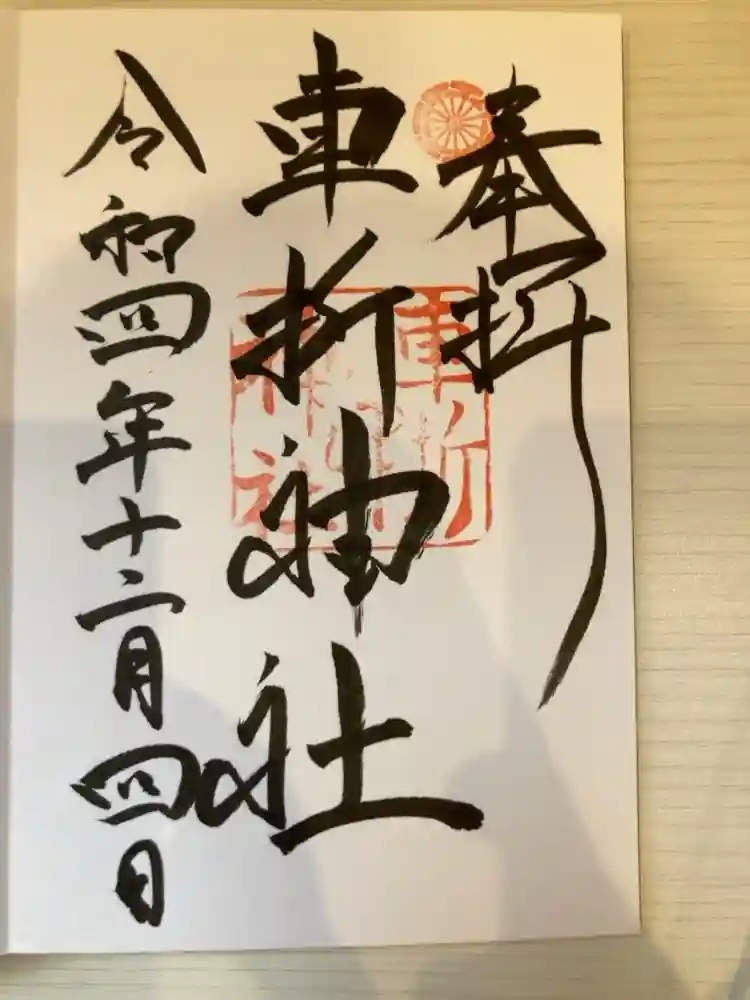 奉拝
車折神社
車折神社
令和四年十二月四日